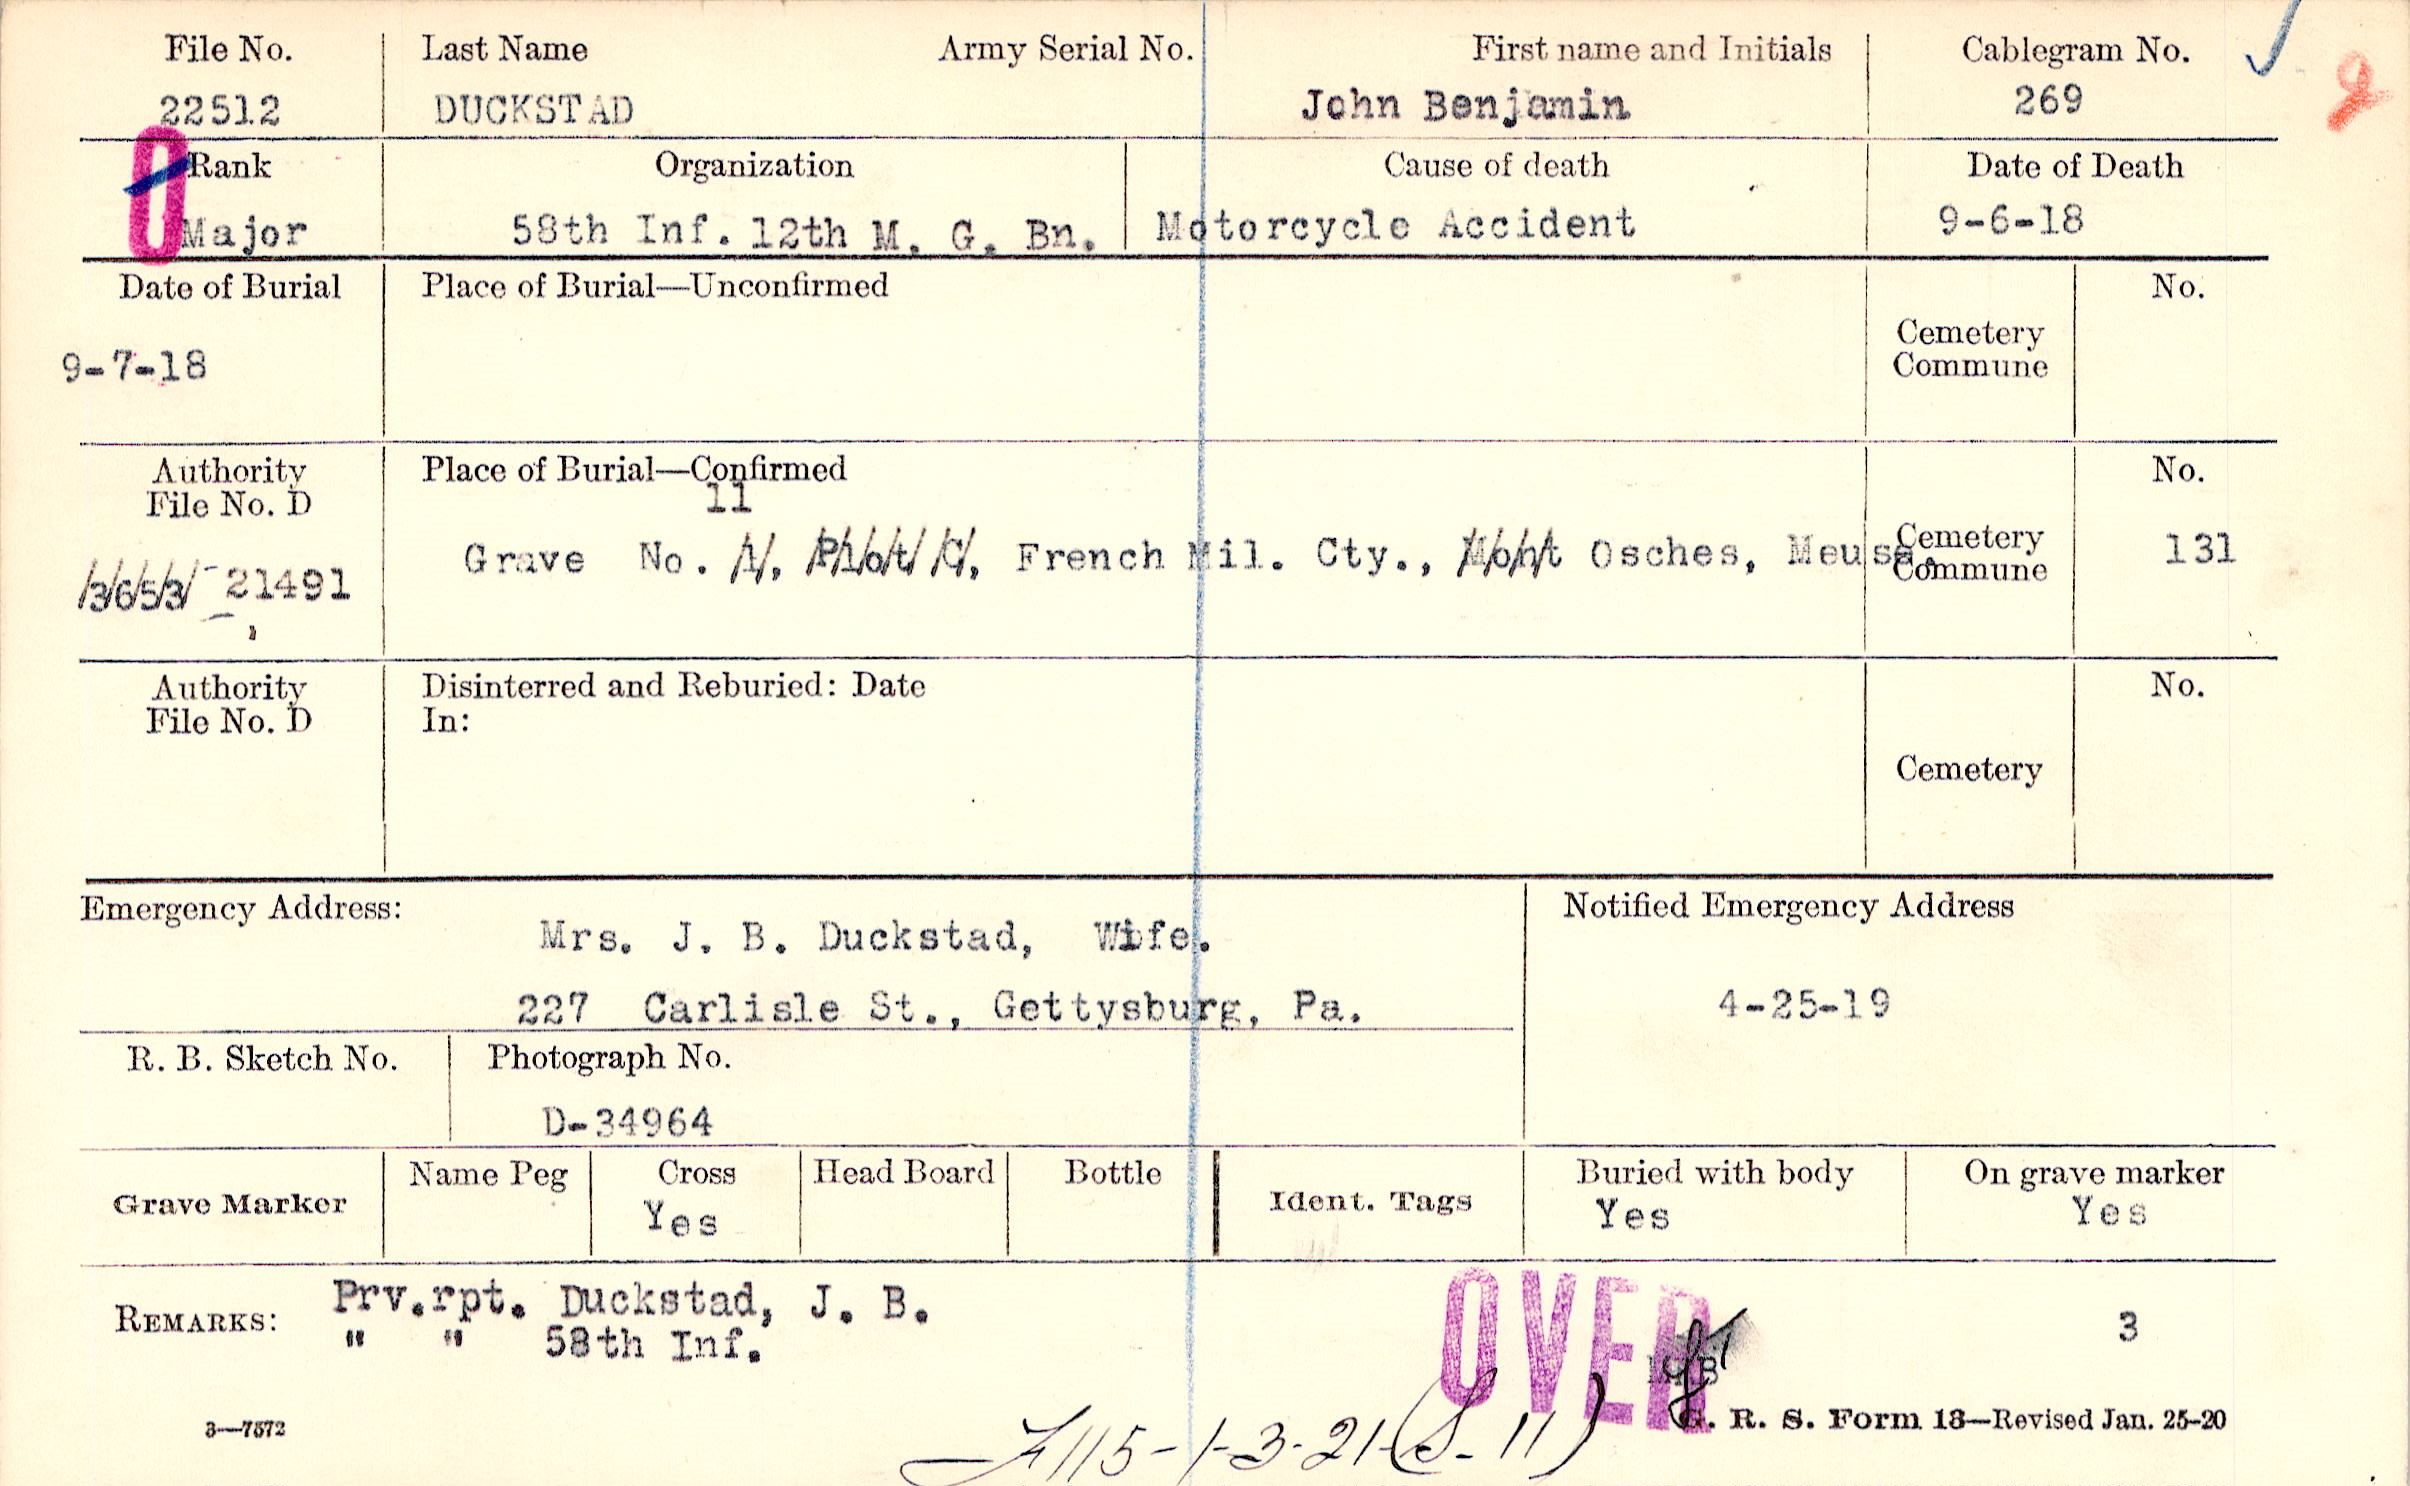 File No. Last Name Army Serial No. First name and Initials Cablegram No.
22512 DUCKSTAD John Benjamin 269
Rank Organization Cause of death Date of Death
Major 58th Inf. 12th M. G. Bn. Motorcycle Accident 9-6-18
Date of Burial Place of Burial—Unconfirmed No.
Cemetery
Commune
9-7-18
Authority Place of Burial—Confirmed No.
File No. D
11
Grave No. 1, Plot C, French Mil. Cty., Mont Osches, Meuse. Cemetery 131
Commune
3653 - 21491
Authority Disinterred and Reburied: Date No.
File No. D In:
Cemetery
Emergency Address: Notified Emergency Address
Mrs. J. B. Duckstad, Wife.
227 Carlisle St., Gettysburg, Pa. 4-25-19
R. B. Sketch No. Photograph No.
D-34964
Grave Marker Name Peg Cross Head Board Bottle Ident. Tags Buried with body On grave marker
Yes Yes Yes
REMARKS: Prv.rpt. Duckstad, J. B. 3
" " 58th Inf.
OVER
3—7572 G. R. S. Form 13—Revised Jan. 25-20
115-1-3-21-(S-11)